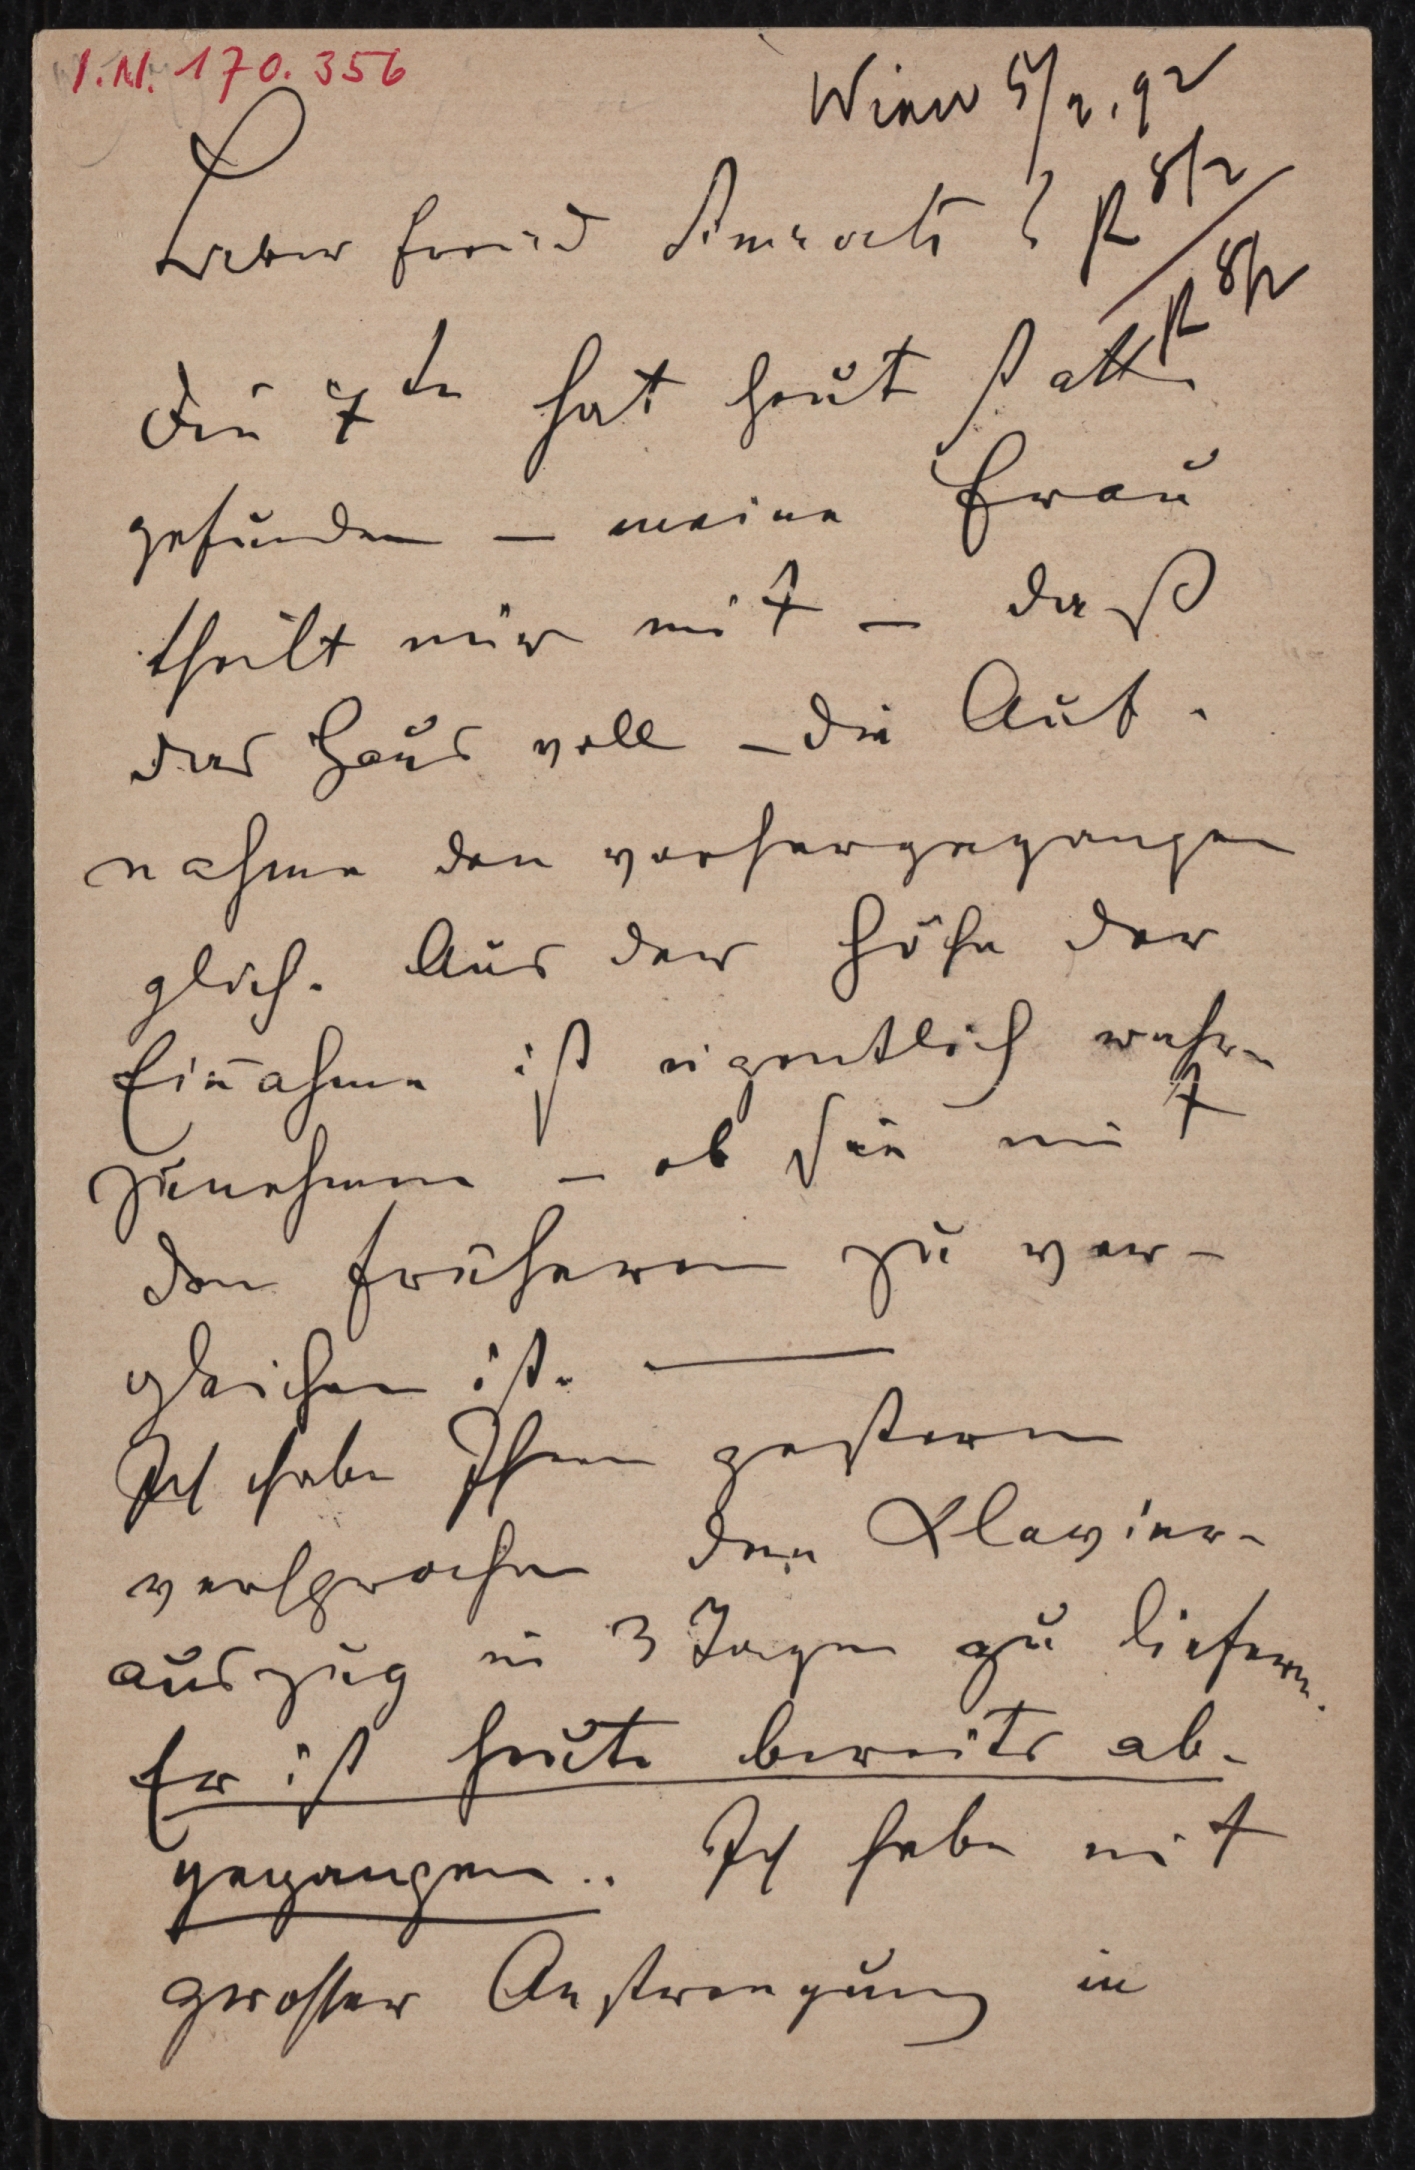 I.N. 170.356
Wien 5/2.92
Lieber Freund Simrock! R 8/2
R 8/2
Die 7te hat heut statt
gefunden – meine Frau
theilt mir mit – daß
das Haus voll – die Auf-
nahme den vorhergegangen
glich. Aus der Höhe der
Einnahme ist eigentlich wahr-
zunehmen – ob sie mit
den früheren zu ver-
gleichen ist. —
Ich habe Ihnen gestern
versprochen den Klavier-
auszug in 3 Tagen zu liefern.
Er ist heute bereits ab-
gegangen.. Ich habe mit
grosser Anstrengung in